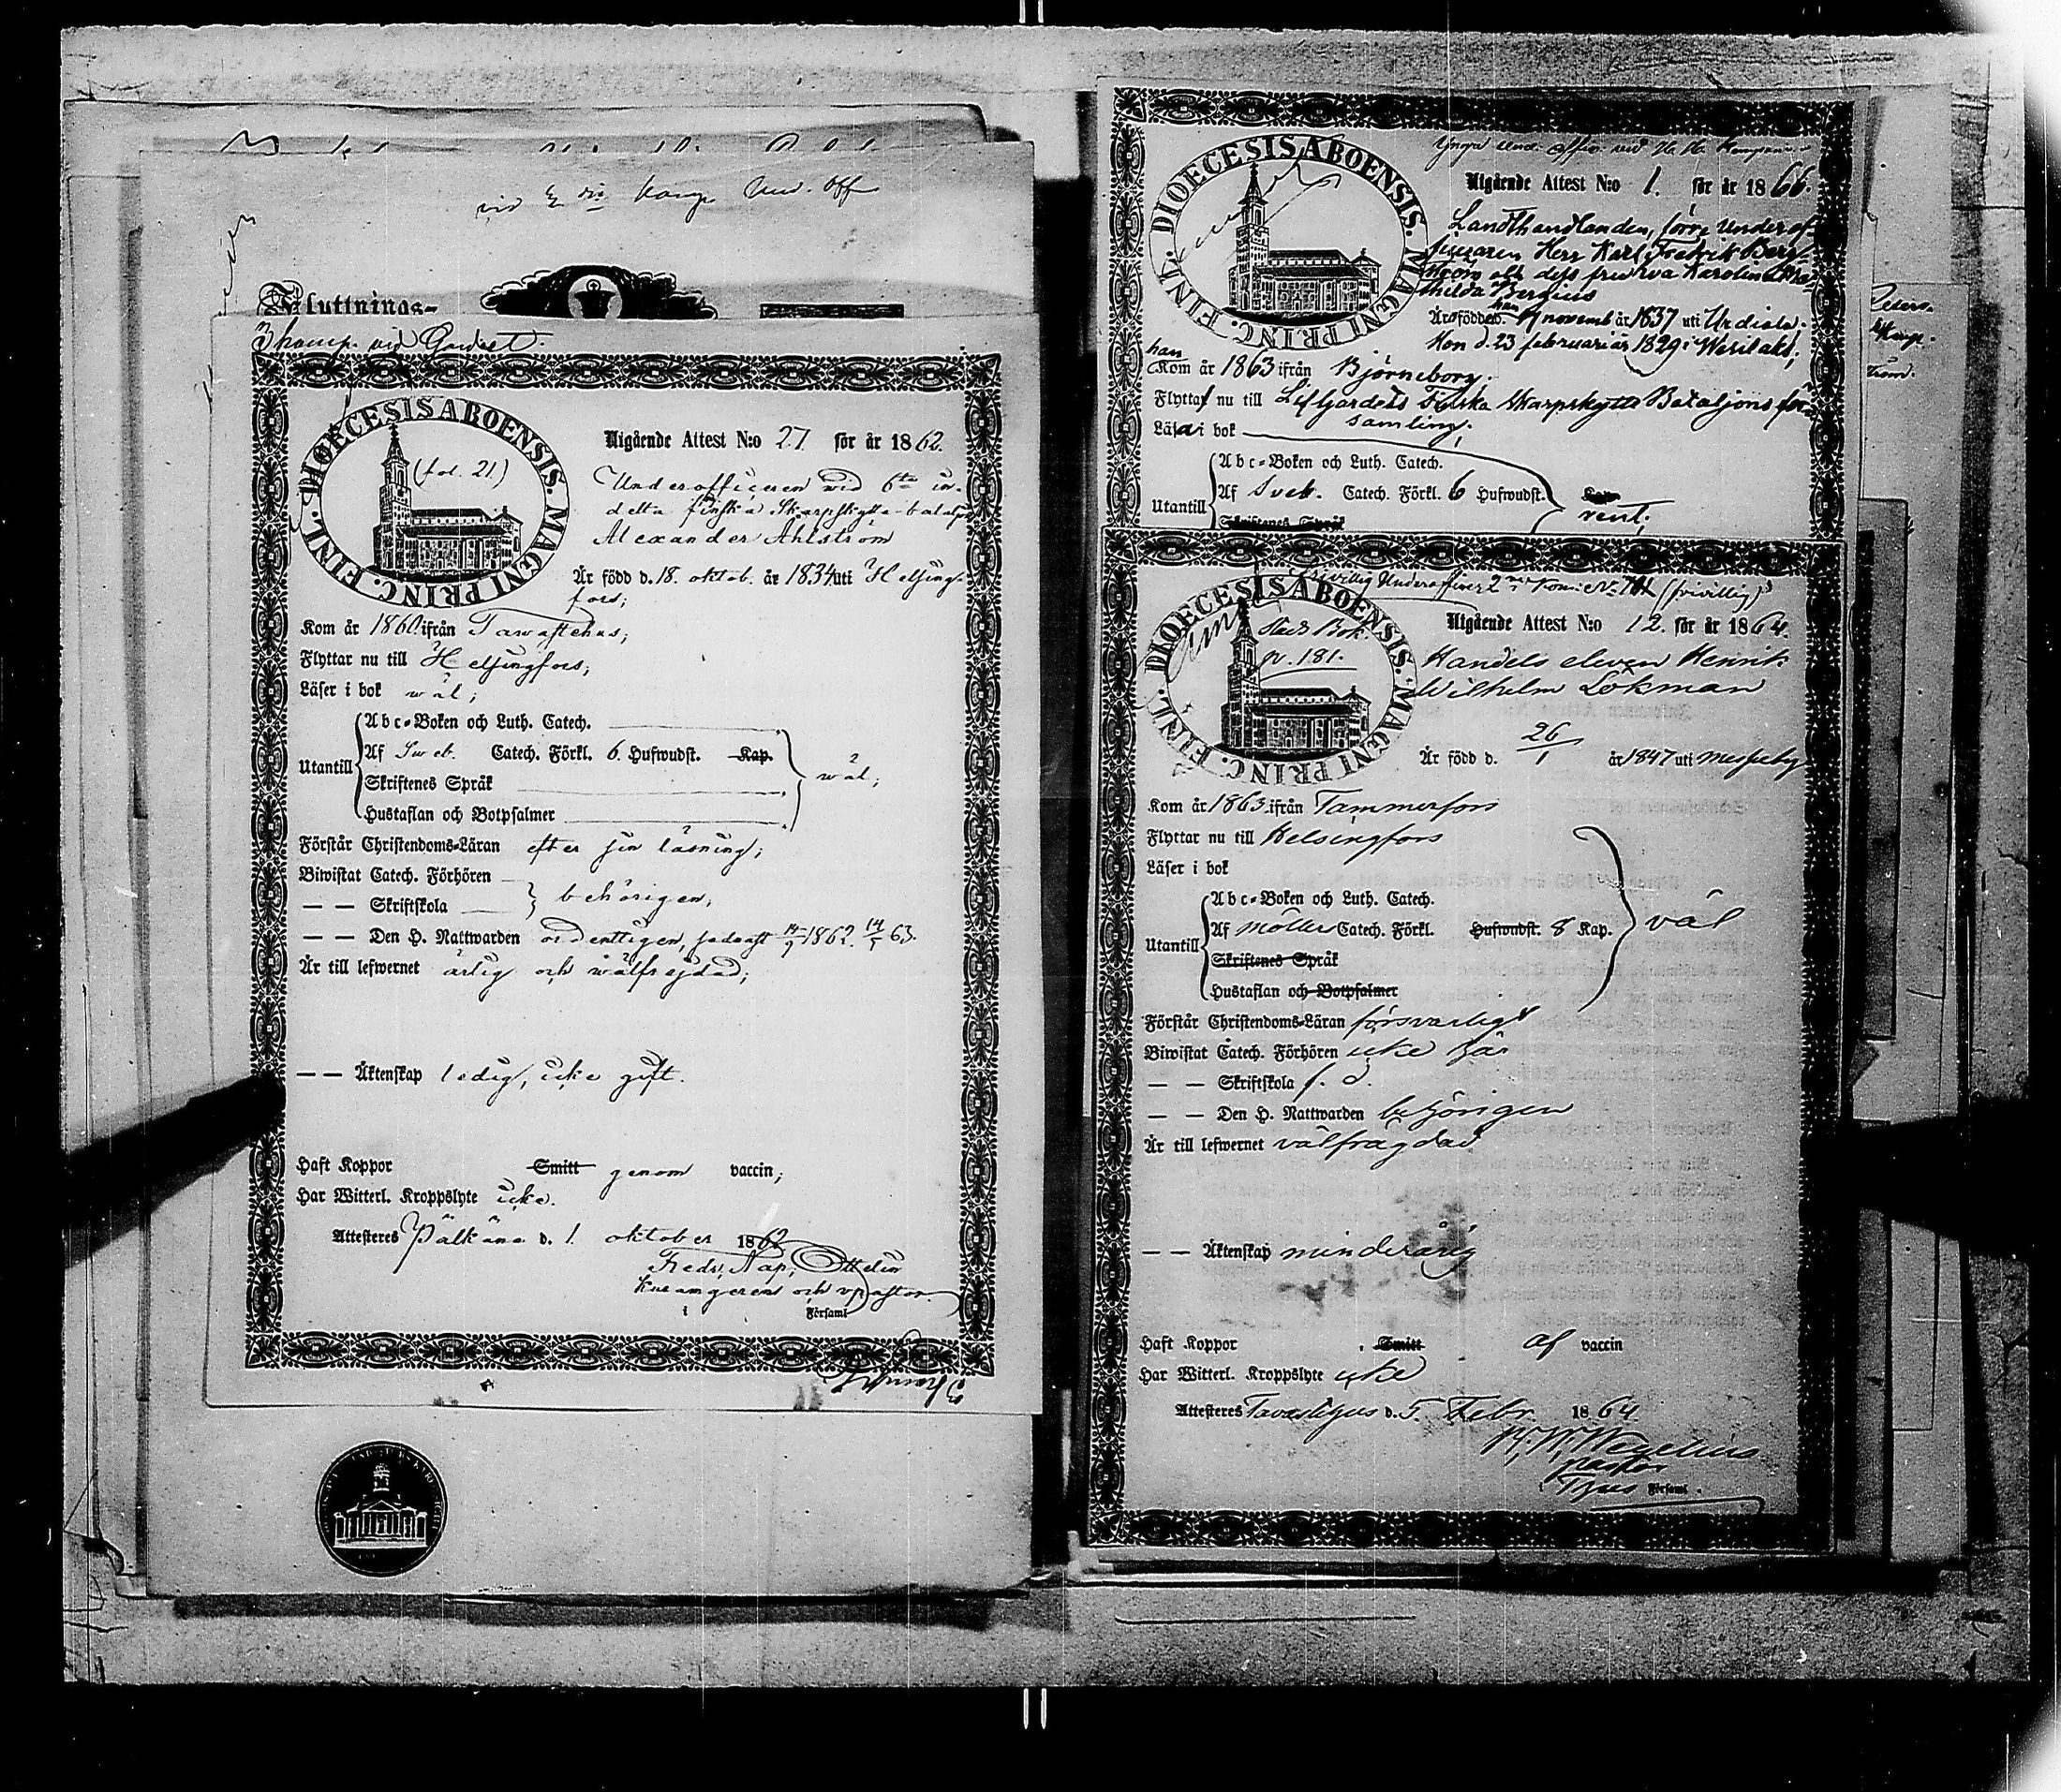 vid komp. Und. Off
Flyttnings-
3 komp. vid Gardet.
DIOECESIS ABOENSIS. MAGNI PRINC. FINL.
(fol. 21.)
Utgående Attest N:o 27 för år 1862.
Underofficeren vid 6te in-
delta finska Skarpskytte-bataljon
Alexander Ahlström
Är född d. 18. oktob. år 1834 uti Helsing-
fors;
Kom år 1860 ifrån Tawastehus;
Flyttar nu till Helsingfors;
Läser i bok wäl;
Utantill
Abc-Boken och Luth. Catech.
Af Sweb. Catech. Förkl. 6. Hufwudst. Kap.
wäl;
Skriftenes Språk
Hustaflan och Botpsalmer
Förstår Christendoms-Läran efter sin läsning;
Biwistat Catech. Förhören
— — Skriftskola
behörigen;
— — Den H. Nattwarden ordentligen, sednast 14/9 1862. 14/5 63.
Är till lefwernet ärlig och wälfrejdad;
— — Äktenskap ledig, icke gift.
Haft Koppor Smitt genom vaccin;
Har Witterl. Kroppslyte icke.
Attesteres Pälkäne d. 1. oktober 1862
Fredr. Nap. Ottelin
och vpastor
i Församl
DIOECESIS ABOENSIS. MAGNI PRINC. FINL.
Utgående Attest N:o 1. för år 1866.
Landthandlanden, förre Underof-
ficeraren Herr Karl Fredrik Berg-
ström och dess fru Eva Karolina Ma-
thilda Bergius
Är född han d. 9 novemb år 1837 uti Urdiala.
Hon d. 23 februari år 1829 i Wesilaks;
han
Kom år 1863 ifrån Björneborg.
Flyttar nu till Lifgardets Finska Skarpskytte Bataljons för-
samling;
Läsa i bok
Utantill
Abc-Boken och Luth. Catech.
Af Sveb. Catech. Förkl. 6 Hufwudst. Kap.
rent;
Skriftenes Språk
DIOECESIS ABOENSIS. MAGNI PRINC. FINL.
frivillig Underofficer 2ner Kom. N. 101 (frivillig)
Stads Bok.
p. 181.
Utgående Attest N:o 12. för år 1864.
Handels eleven Henrik
Wilhelm Lökman
Är född d. 26/1 år 1847 uti Messuby
Kom år 1863 ifrån Tammerfors
Flyttar nu till Helsingfors
Läser i bok
Utantill
Abc-Boken och Luth. Catech.
Af Möllers Catech. Förkl. Hufwudst. 8 Kap.
väl
Skriftenes Språk
Hustaflan och Botpsalmer
Förstår Christendoms-Läran försvarligt
Biwistat Catech. Förhören icke här
— — Skriftskola f. d.
— — Den H. Nattwarden behörigen
Är till lefwernet välfrägdad
— — Äktenskap minderårig
Haft Koppor Smitt af vaccin
Har Witterl. Kroppslyte icke
Attesteres Tavastehus d. 5. Febr. 1864
Wegelius
pastor
Församl.